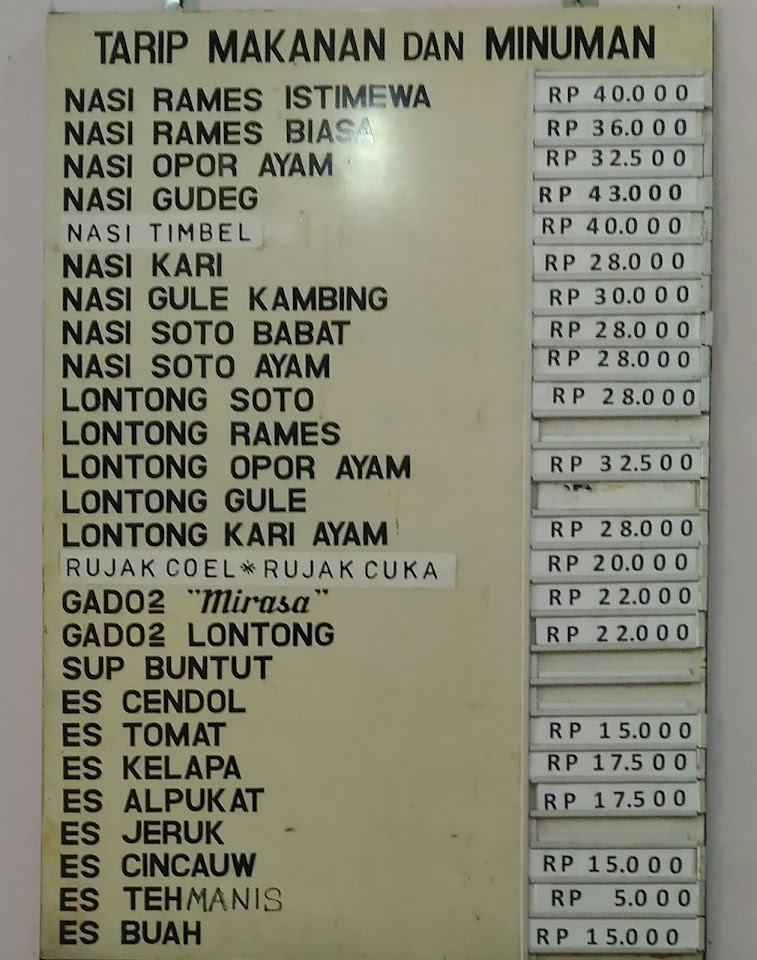 TARIP MAKANAN DAN MINUMAN
NASI RAMES ISTIMEWA RP 40.000
NASI RAMES BIASA RP 36.000
NASI OPOR AYAM RP 32.500
NASI GUDEG RP 43.000
NASI TIMBEL RP 40.000
NASI KARI RP 28.000
NASI GULE KAMBING RP 30.000
NASI SOTO BABAT RP 28.000
NASI SOTO AYAM RP 28.000
LONTONG SOTO RP 28.000
LONTONG RAMES
LONTONG OPOR AYAM RP 32.500
LONTONG GULE
LONTONG KARI AYAM RP 28.000
RUJAK COEL*RUJAK CUKA RP 20.000
GADO2 "Mirasa" RP 22.000
GADO2 LONTONG RP 22.000
SUP BUNTUT
ES CENDOL
ES TOMAT RP 15.000
ES KELAPA RP 17.500
ES ALPUKAT RP 17.500
ES JERUK
ES CINCAUW RP 15.000
ES TEH MANIS RP 5.000
ES BUAH RP 15.000